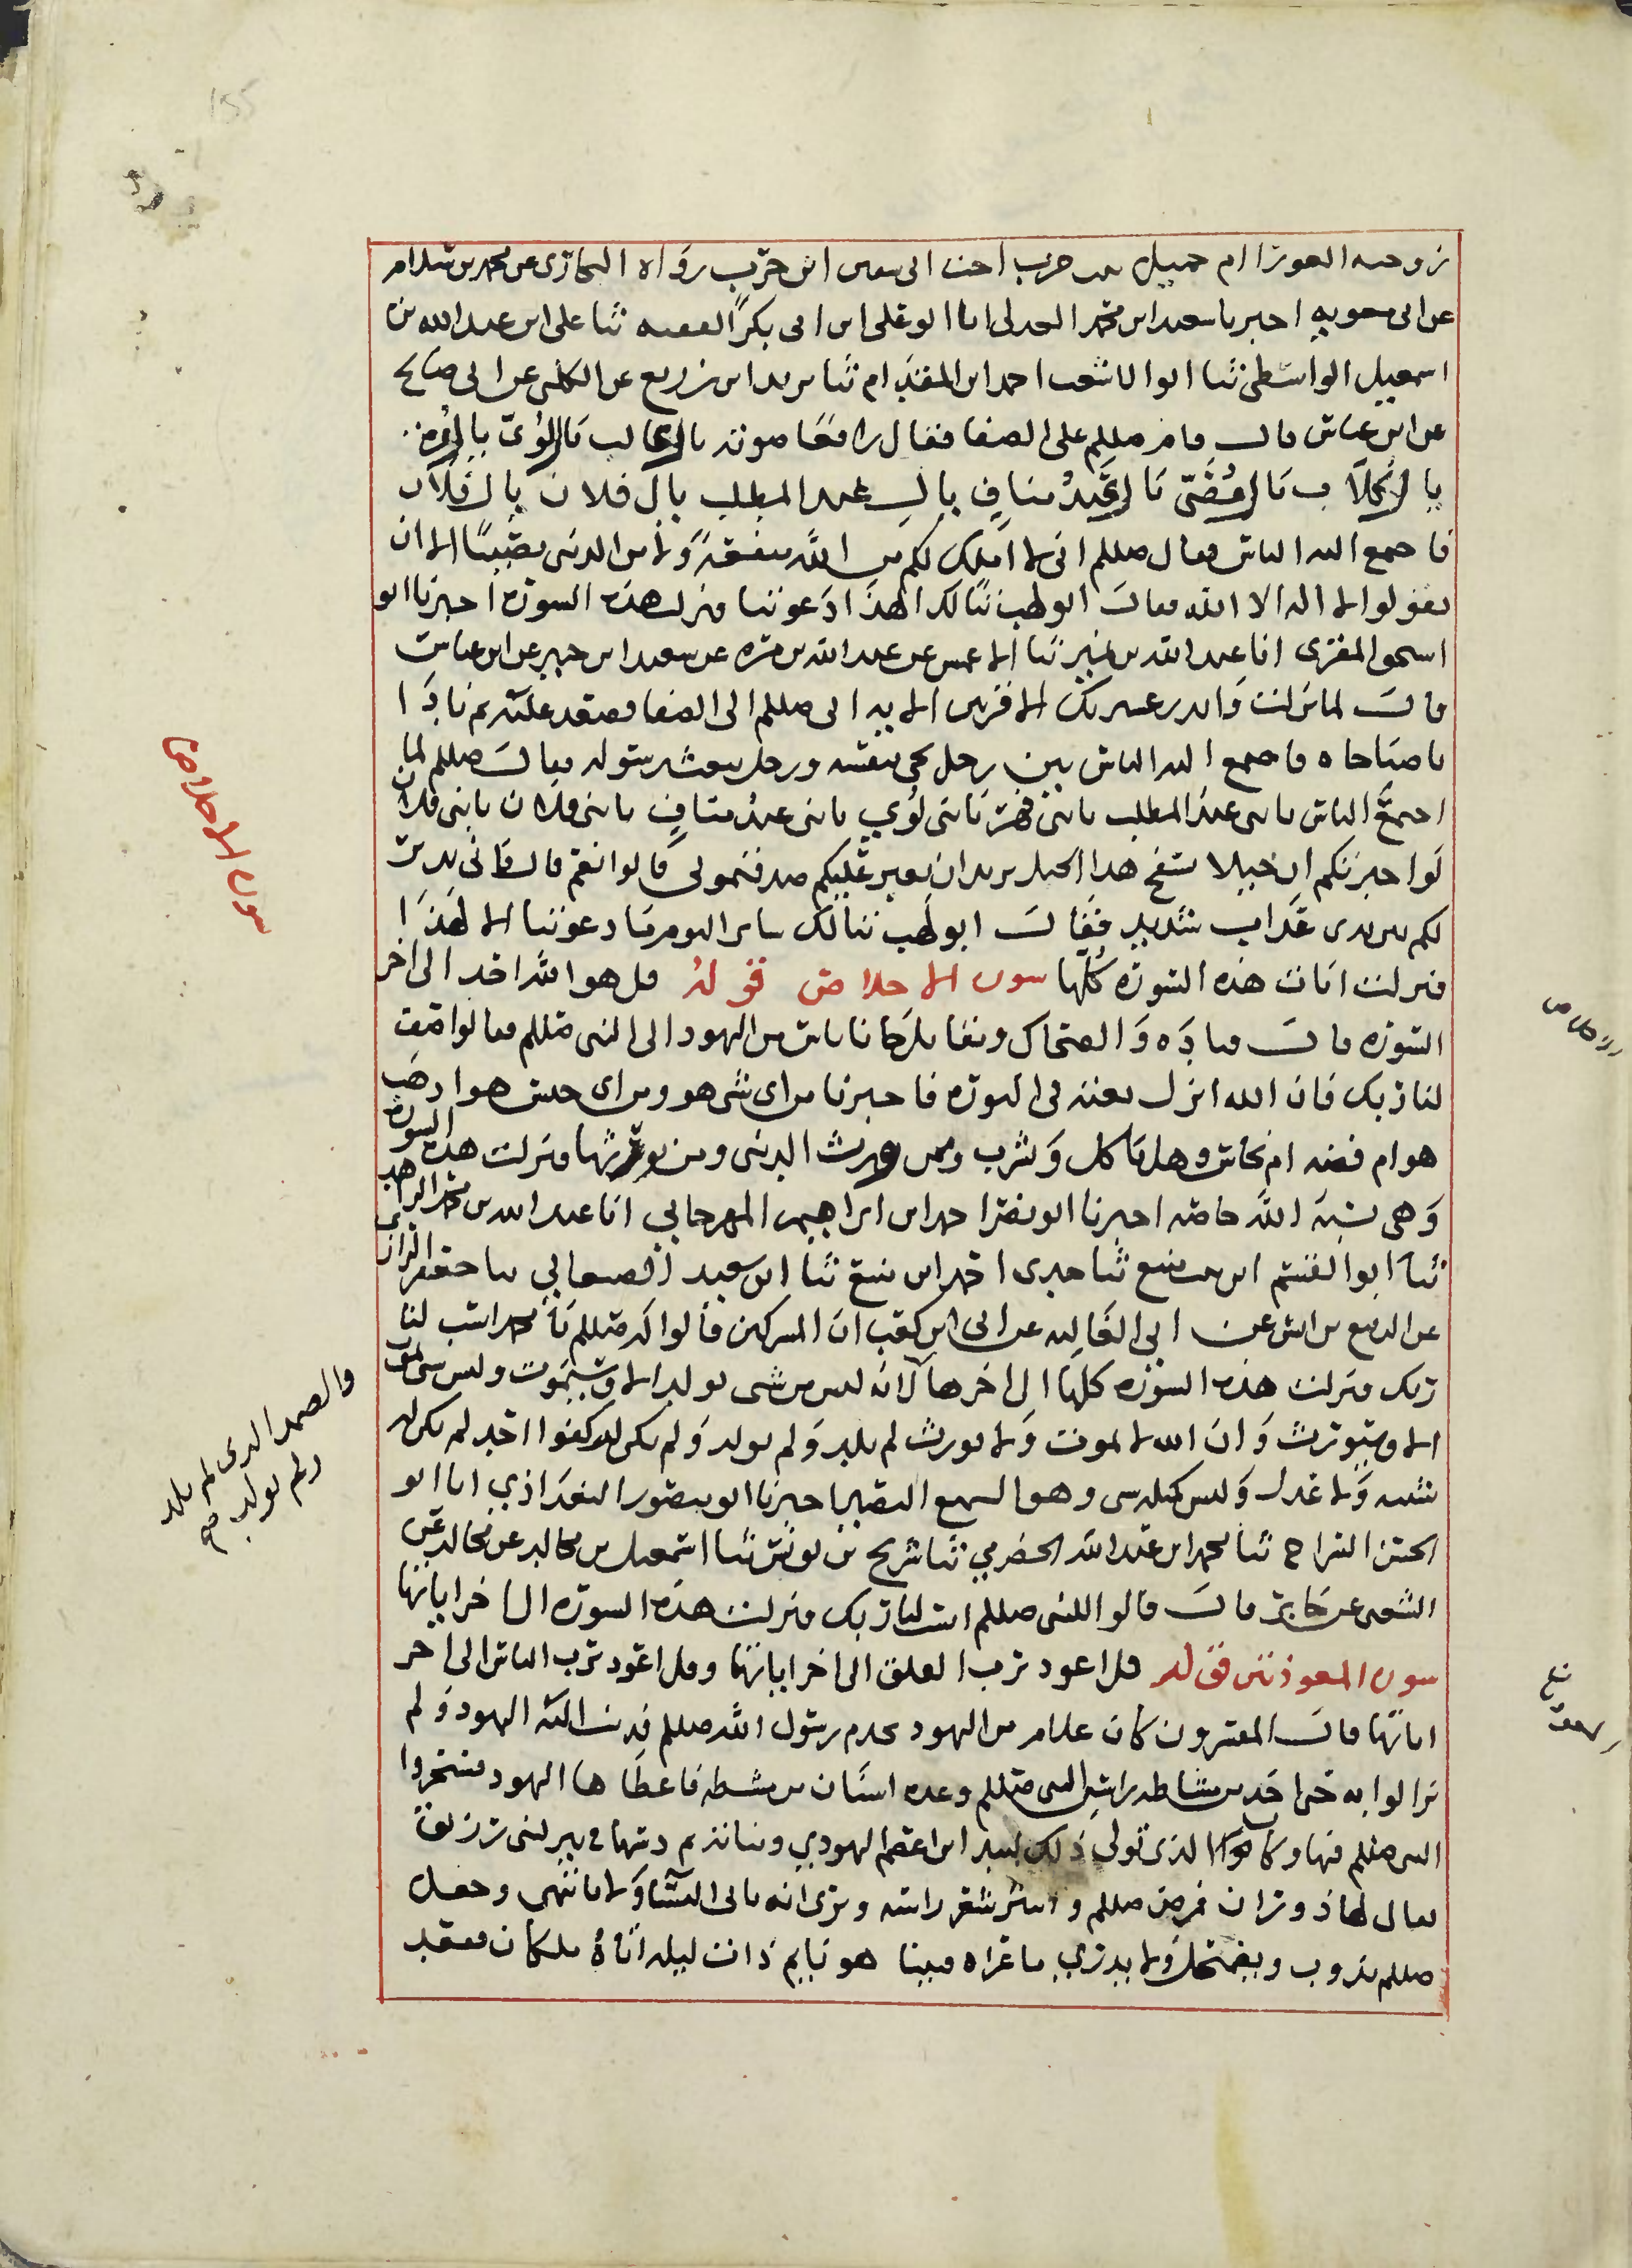 زوجته العورا ام جميل بنت حرب اخت ابي سفين ابن حرب رواه البخاري عن محمد بن سلام
عن ابي معويه اخبرنا سعيد ابن محمد العدل انا ابو علي ابن ابي بكر الفقيه ثنا علي ابن عبد الله بن
اسمعيل الواسطي ثنا ابوالاشعب احمد ابن المقدام ثنا يزيد ابن زريع عن الكلبي عن ابي صالح
عن ابن عباس قال قام صللم على الصفا فقال رافعا صوته يال غالب يال لؤي يال مره
يال كلاب يال قصي يال عبد مناف يال عبد المطلب يال فلان يال فلان
فاجمع اليه الناس فقال صللم اني لا املك لكم من الله منفعة ولا من الدنيا نصيبا الا ان
تقولوا لا اله الا الله فقال ابو لهب تبا لك الهذا دعوتنا فنزلت هذه السوره اخبرنا ابو
اسحق المقري انا عبد الله بن نمير ثنا الاعمش عن عبد الله بن مره عن سعيد ابن جبير عن ابن عباس
قال لما نزلت وانذر عشيرتك الاقربين الايه اتى صللم الى الصفا فصعد عليه ثم نادا
يا صباحاه فاجمع اليه الناس بين رجل يجي بنفسه ورجل يبعث رسوله فقال صللم لما
اجمع الناس يا بني عبد المطلب يا بني فهر يا بني لوي يا بني عبد مناف يا بني فلان يا بني فلان
لو اخبرتكم ان خيلا بسفح هذا الجبل يريد ان يغير عليكم صدقتموني قالوا نعم قال فاني نذير
لكم بين يدي عذاب شديد فقال ابو لهب تبا لك ساير اليوم ما دعوتنا الا لهذا
فنزلت ايات هذه السوره كلها سورة الاخلاص قوله قل هو الله احد الى اخر
السوره قال قتاده والضحاك ومقاتل جا ناس من اليهود الى النبي صللم فقالوا صف
لنا ربك فان الله انزل نعته في التوره فاخبرنا من اي شي هو ومن اي جنس هو اذهب
هو ام فضه ام نحاس وهل ياكل ويشرب وممن ورث الدنيا ومن يورثها فنزلت هذه السوره
وهي نسبة الله خاصه اخبرنا ابو نصر احمد ابن ابراهيم المهرجاني انا عبد الله بن محمد الزاهد
ثنا ابوالقسم ابن بنت منيع ثنا جدي احمد ابن منيع ثنا ابن سعيد الصعاني ثنا جعفر الرازي
عن الربيع بن انس عن ابي العاليه عن ابي ابن كعب ان المشركين قالوا له صللم يا محمد انسب لنا
ربك فنزلت هذه السوره كلها الى اخرها لانه ليس من شي يولد الا وسيموت وليس شي يموت
الا وسيورث وان الله لا يموت ولا يورث لم يلد ولم يولد ولم يكن له كفوا احد لم يكن له
شبيه ولا عدل وليس كمثله شي وهو السميع البصير اخبرنا ابو منصور البغداذي انا ابو
الحسن السراج ثنا محمد ابن عبد الله الحضرمي ثنا شريح بن يونس ثنا اسمعيل بن مجالد عن مجالد عن
الشعبي عن جابر قال قالوا للنبي صللم انسب لنا ربك فنزلت هذه السوره الى اخر اياتها
سورة المعوذتين قوله قل اعوذ برب الفلق الى اخر اياتها وقل اعوذ برب الناس الى اخر
اياتها قال المفسرون كان غلام من اليهود يخدم رسول الله صللم فدبت اليه اليهود ولم
يزالوا به حتى اخذ من مشاطه راس النبي صللم وعده اسنان من مشطه فاعطاها اليهود فسحروا
النبي صللم فيها وكان الذي تولى ذلك لبيد ابن اعصم اليهودي وساترهم دسها في بير لبني زريق
يقال لها ذوران فمرض صللم وانتثر شعر راسه ويرى انه ياتي النسا ولا ياتيهن وجعل
صللم يذوب ولا يدري ما عراه فبينا هو نايم ذات ليله اتاه ملكان فقعد
سورة الاخلاص
والصمد الذي لم يلد
ولم يولد صح